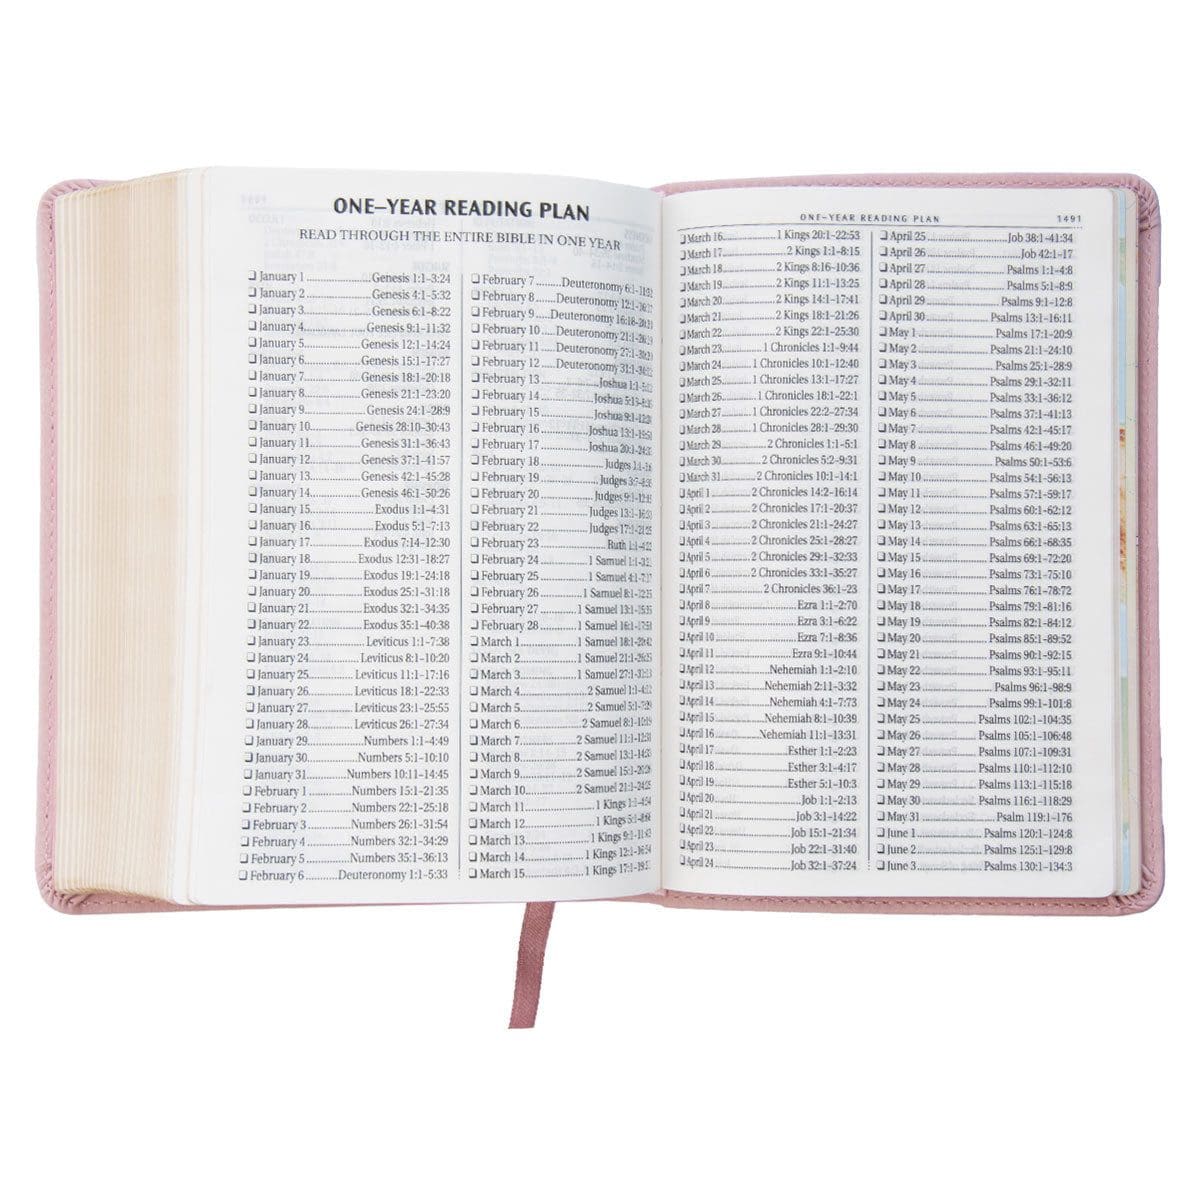 ONE–YEAR READING PLAN
READ THROUGH THE ENTIRE BIBLE IN ONE YEAR
❏ January 1 Genesis 1:1–3:24
❏ January 2 Genesis 4:1–5:32
❏ January 3 Genesis 6:1–8:22
❏ January 4 Genesis 9:1–11:32
❏ January 5 Genesis 12:1–14:24
❏ January 6 Genesis 15:1–17:27
❏ January 7 Genesis 18:1–20:18
❏ January 8 Genesis 21:1–23:20
❏ January 9 Genesis 24:1–28:9
❏ January 10 Genesis 28:10–30:43
❏ January 11 Genesis 31:1–36:43
❏ January 12 Genesis 37:1–41:57
❏ January 13 Genesis 42:1–45:28
❏ January 14 Genesis 46:1–50:26
❏ January 15 Exodus 1:1–4:31
❏ January 16 Exodus 5:1–7:13
❏ January 17 Exodus 7:14–12:30
❏ January 18 Exodus 12:31–18:27
❏ January 19 Exodus 19:1–24:18
❏ January 20 Exodus 25:1–31:18
❏ January 21 Exodus 32:1–34:35
❏ January 22 Exodus 35:1–40:38
❏ January 23 Leviticus 1:1–7:38
❏ January 24 Leviticus 8:1–10:20
❏ January 25 Leviticus 11:1–17:16
❏ January 26 Leviticus 18:1–22:33
❏ January 27 Leviticus 23:1–25:55
❏ January 28 Leviticus 26:1–27:34
❏ January 29 Numbers 1:1–4:49
❏ January 30 Numbers 5:1–10:10
❏ January 31 Numbers 10:11–14:45
❏ February 1 Numbers 15:1–21:35
❏ February 2 Numbers 22:1–25:18
❏ February 3 Numbers 26:1–31:54
❏ February 4 Numbers 32:1–34:29
❏ February 5 Numbers 35:1–36:13
❏ February 6 Deuteronomy 1:1–5:33
❏ February 7 Deuteronomy 6:1–11:32
❏ February 8 Deuteronomy 12:1–
❏ February 9 Deuteronomy 16:18–
❏ February 10 Deuteronomy 21:1–
❏ February 11 Deuteronomy 27:1–
❏ February 12 Deuteronomy 31:1–
❏ February 13 Joshua 1:1–
❏ February 14 Joshua 5:13–
❏ February 15 Joshua 9:1–
❏ February 16 Joshua 13:1–
❏ February 17 Joshua 20:1–
❏ February 18 Judges 1:1–
❏ February 19 Judges 3:7–
❏ February 20 Judges 9:1–
❏ February 21 Judges 13:1–
❏ February 22 Judges 17:1–
❏ February 23 Ruth 1:1–
❏ February 24 1 Samuel 1:1–
❏ February 25 1 Samuel 4:1–
❏ February 26 1 Samuel 8:1–
❏ February 27 1 Samuel 13:1–
❏ February 28 1 Samuel 16:1–
❏ March 1 1 Samuel 18:1–
❏ March 2 1 Samuel 21:1–
❏ March 3 1 Samuel 27:1–
❏ March 4 2 Samuel 1:1–
❏ March 5 2 Samuel 5:1–
❏ March 6 2 Samuel 8:1–
❏ March 7 2 Samuel 11:1–
❏ March 8 2 Samuel 13:1–
❏ March 9 2 Samuel 15:1–
❏ March 10 2 Samuel 21:1–
❏ March 11 1 Kings 1:1–
❏ March 12 1 Kings 5:1–
❏ March 13 1 Kings 9:1–
❏ March 14 1 Kings 12:1–
❏ March 15 1 Kings 17:1–
ONE–YEAR READING PLAN 1491
❏ March 16 1 Kings 20:1–22:53
❏ March 17 2 Kings 1:1–8:15
❏ March 18 2 Kings 8:16–10:36
❏ March 19 2 Kings 11:1–13:25
❏ March 20 2 Kings 14:1–17:41
❏ March 21 2 Kings 18:1–21:26
❏ March 22 2 Kings 22:1–25:30
❏ March 23 1 Chronicles 1:1–9:44
❏ March 24 1 Chronicles 10:1–12:40
❏ March 25 1 Chronicles 13:1–17:27
❏ March 26 1 Chronicles 18:1–22:1
❏ March 27 1 Chronicles 22:2–27:34
❏ March 28 1 Chronicles 28:1–29:30
❏ March 29 2 Chronicles 1:1–5:1
❏ March 30 2 Chronicles 5:2–9:31
❏ March 31 2 Chronicles 10:1–14:1
❏ April 1 2 Chronicles 14:2–16:14
❏ April 2 2 Chronicles 17:1–20:37
❏ April 3 2 Chronicles 21:1–24:27
❏ April 4 2 Chronicles 25:1–28:27
❏ April 5 2 Chronicles 29:1–32:33
❏ April 6 2 Chronicles 33:1–35:27
❏ April 7 2 Chronicles 36:1–23
❏ April 8 Ezra 1:1–2:70
❏ April 9 Ezra 3:1–6:22
❏ April 10 Ezra 7:1–8:36
❏ April 11 Ezra 9:1–10:44
❏ April 12 Nehemiah 1:1–2:10
❏ April 13 Nehemiah 2:11–3:32
❏ April 14 Nehemiah 4:1–7:73
❏ April 15 Nehemiah 8:1–10:39
❏ April 16 Nehemiah 11:1–13:31
❏ April 17 Esther 1:1–2:23
❏ April 18 Esther 3:1–4:17
❏ April 19 Esther 5:1–10:3
❏ April 20 Job 1:1–2:13
❏ April 21 Job 3:1–14:22
❏ April 22 Job 15:1–21:34
❏ April 23 Job 22:1–31:40
❏ April 24 Job 32:1–37:24
❏ April 25 Job 38:1–41:34
❏ April 26 Job 42:1–17
❏ April 27 Psalms 1:1–4:8
❏ April 28 Psalms 5:1–8:9
❏ April 29 Psalms 9:1–12:8
❏ April 30 Psalms 13:1–16:11
❏ May 1 Psalms 17:1–20:9
❏ May 2 Psalms 21:1–24:10
❏ May 3 Psalms 25:1–28:9
❏ May 4 Psalms 29:1–32:11
❏ May 5 Psalms 33:1–36:12
❏ May 6 Psalms 37:1–41:13
❏ May 7 Psalms 42:1–45:17
❏ May 8 Psalms 46:1–49:20
❏ May 9 Psalms 50:1–53:6
❏ May 10 Psalms 54:1–56:13
❏ May 11 Psalms 57:1–59:17
❏ May 12 Psalms 60:1–62:12
❏ May 13 Psalms 63:1–65:13
❏ May 14 Psalms 66:1–68:35
❏ May 15 Psalms 69:1–72:20
❏ May 16 Psalms 73:1–75:10
❏ May 17 Psalms 76:1–78:72
❏ May 18 Psalms 79:1–81:16
❏ May 19 Psalms 82:1–84:12
❏ May 20 Psalms 85:1–89:52
❏ May 21 Psalms 90:1–92:15
❏ May 22 Psalms 93:1–95:11
❏ May 23 Psalms 96:1–98:9
❏ May 24 Psalms 99:1–101:8
❏ May 25 Psalms 102:1–104:35
❏ May 26 Psalms 105:1–106:48
❏ May 27 Psalms 107:1–109:31
❏ May 28 Psalms 110:1–112:10
❏ May 29 Psalms 113:1–115:18
❏ May 30 Psalms 116:1–118:29
❏ May 31 Psalm 119:1–176
❏ June 1 Psalms 120:1–124:8
❏ June 2 Psalms 125:1–129:8
❏ June 3 Psalms 130:1–134:3